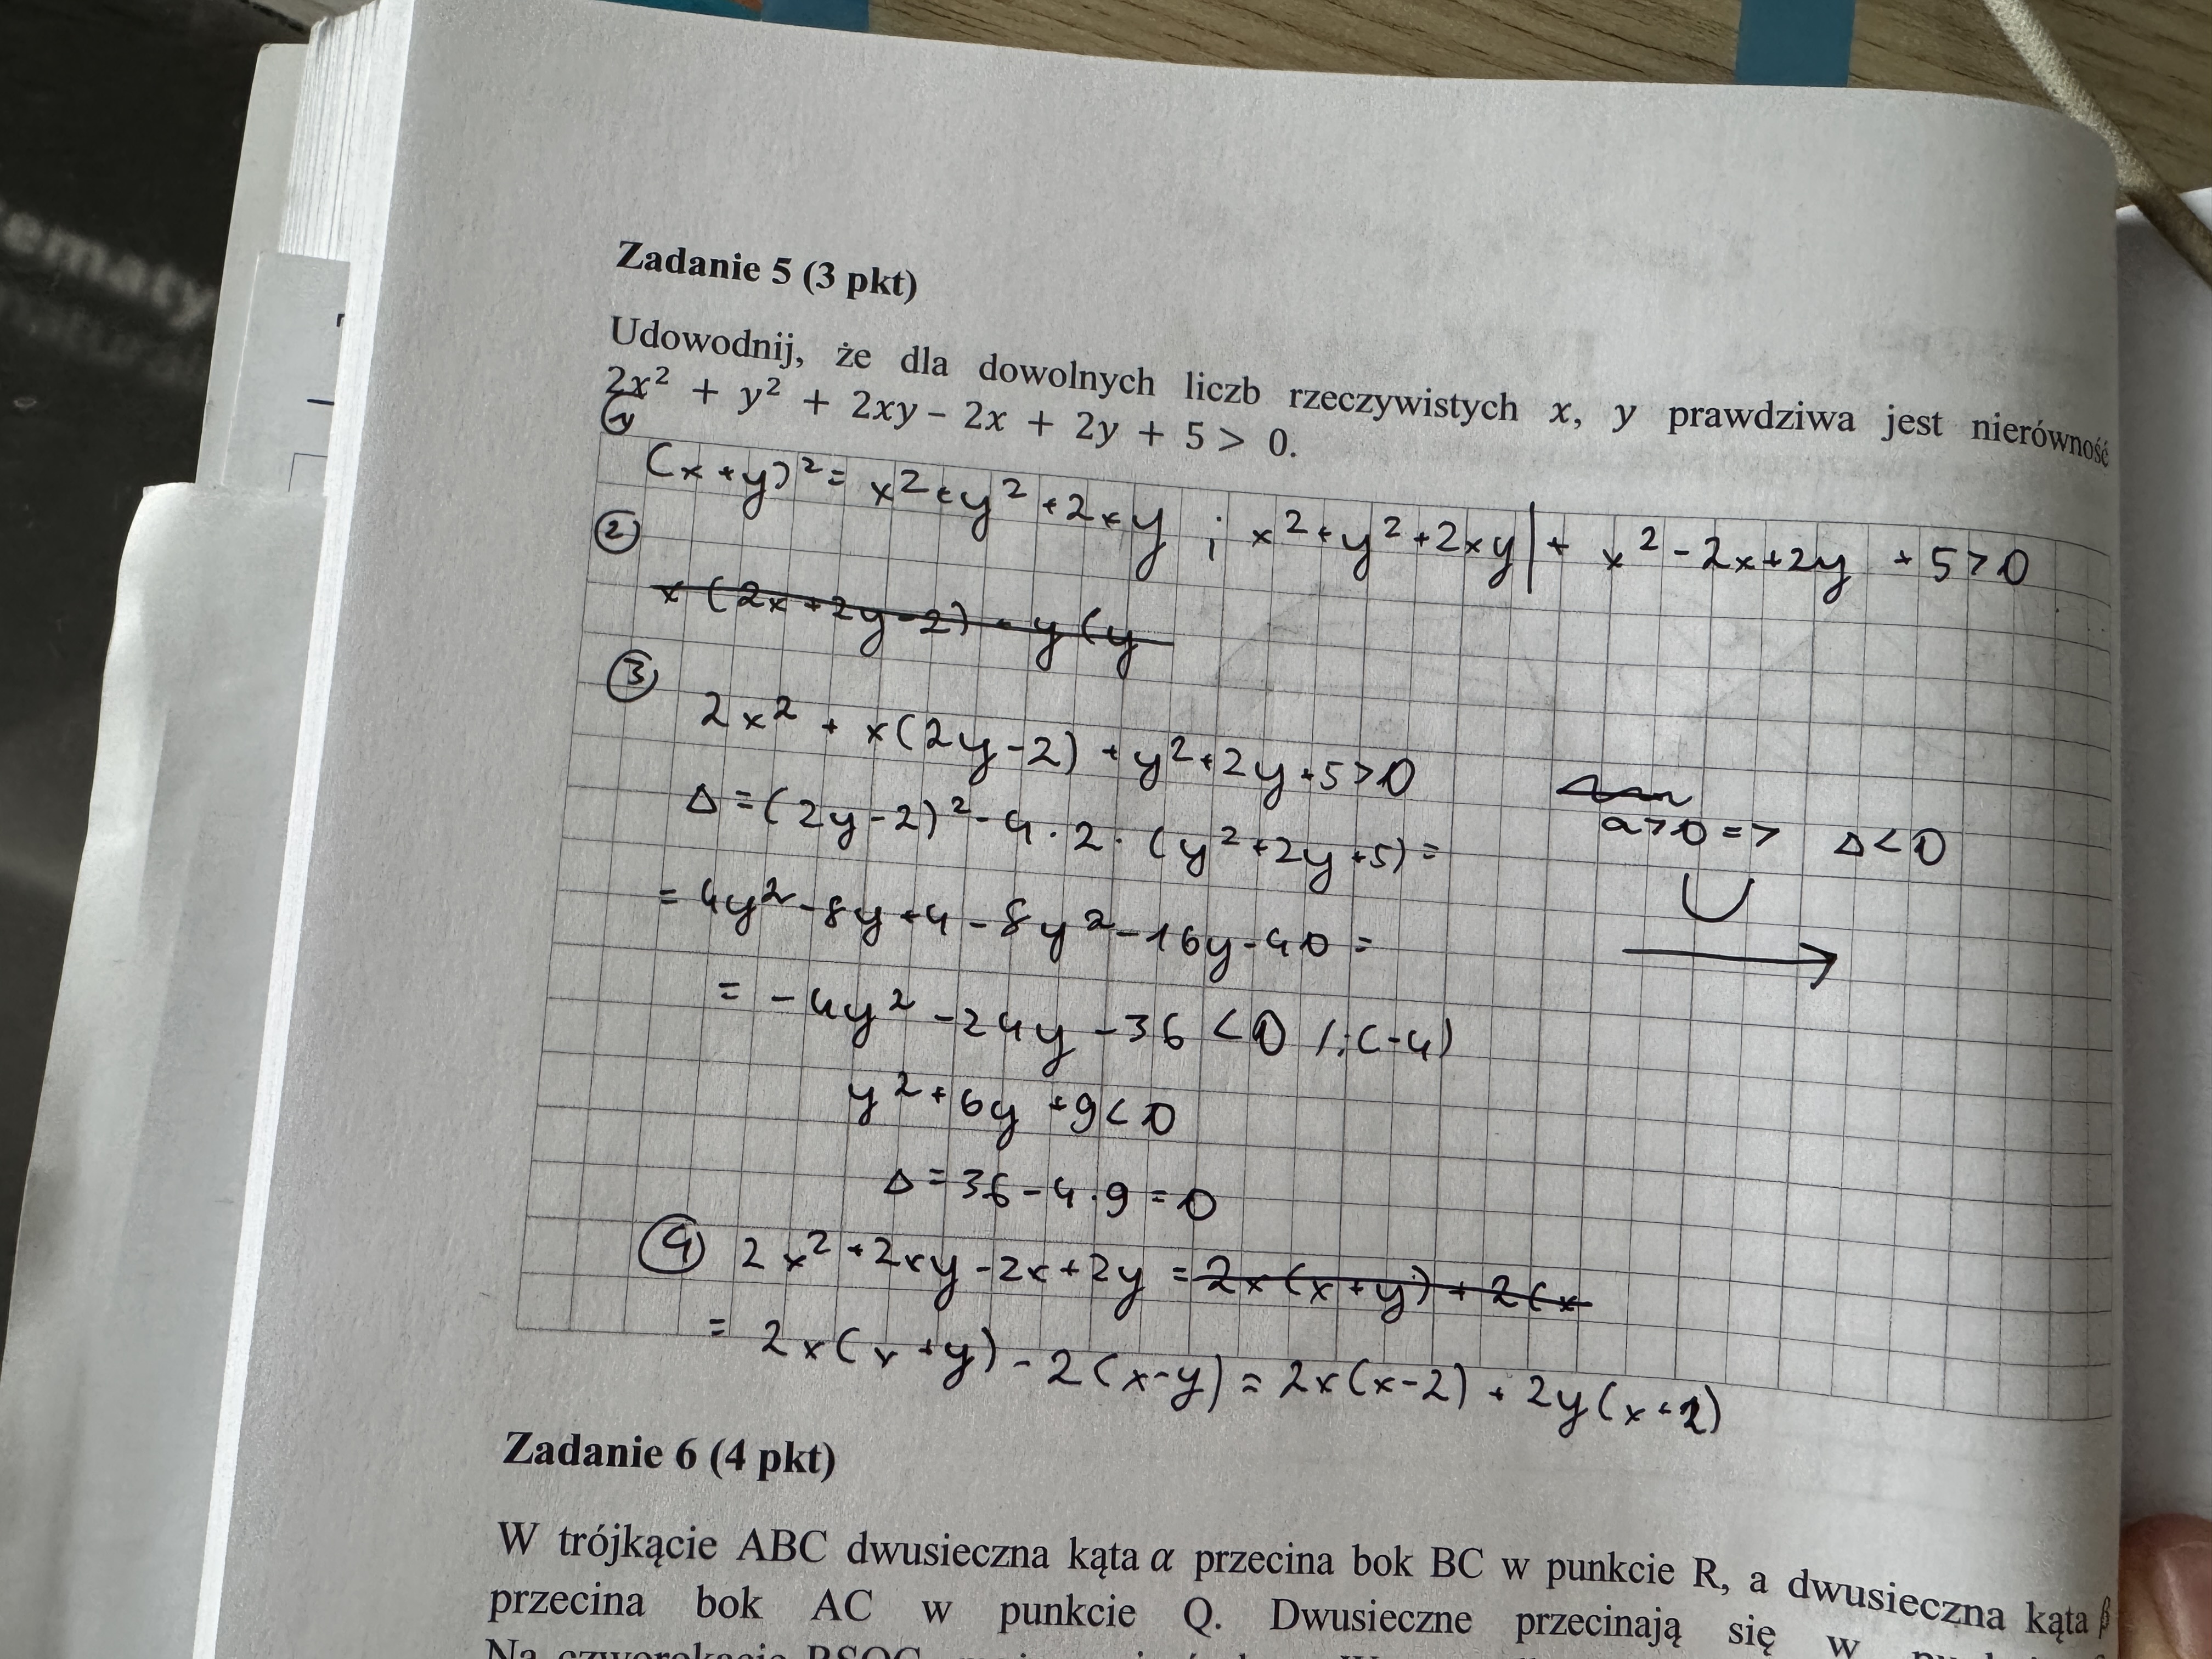 ematy
Zadanie 5 (3 pkt)
Udowodnij, że dla dowolnych liczb rzeczywistych x, y prawdziwa jest nierówność
2x² + y² + 2xy – 2x + 2y + 5 > 0.
① (x+y)² = x²+y²+2xy ; x²+y²+2xy | + x²-2x+2y +5>0
② x(2x+2y-2) + y(y
③ 2x² + x(2y-2) + y²+2y+5>0
Δ=(2y-2)²-4·2·(y²+2y+5)=
a>0 => Δ<0
= 4y²-8y+4-8y²-16y-40 =
= -4y² -24y -36 <0 /:(-4)
y²+6y+9<0
Δ=36-4·9=0
④ 2x²+2xy-2x+2y = 2x(x+y)+2(x
= 2x(x+y)-2(x-y) = 2x(x-2) + 2y(x+2)
Zadanie 6 (4 pkt)
W trójkącie ABC dwusieczna kąta α przecina bok BC w punkcie R, a dwusieczna kąta β
przecina bok AC w punkcie Q. Dwusieczne przecinają się w